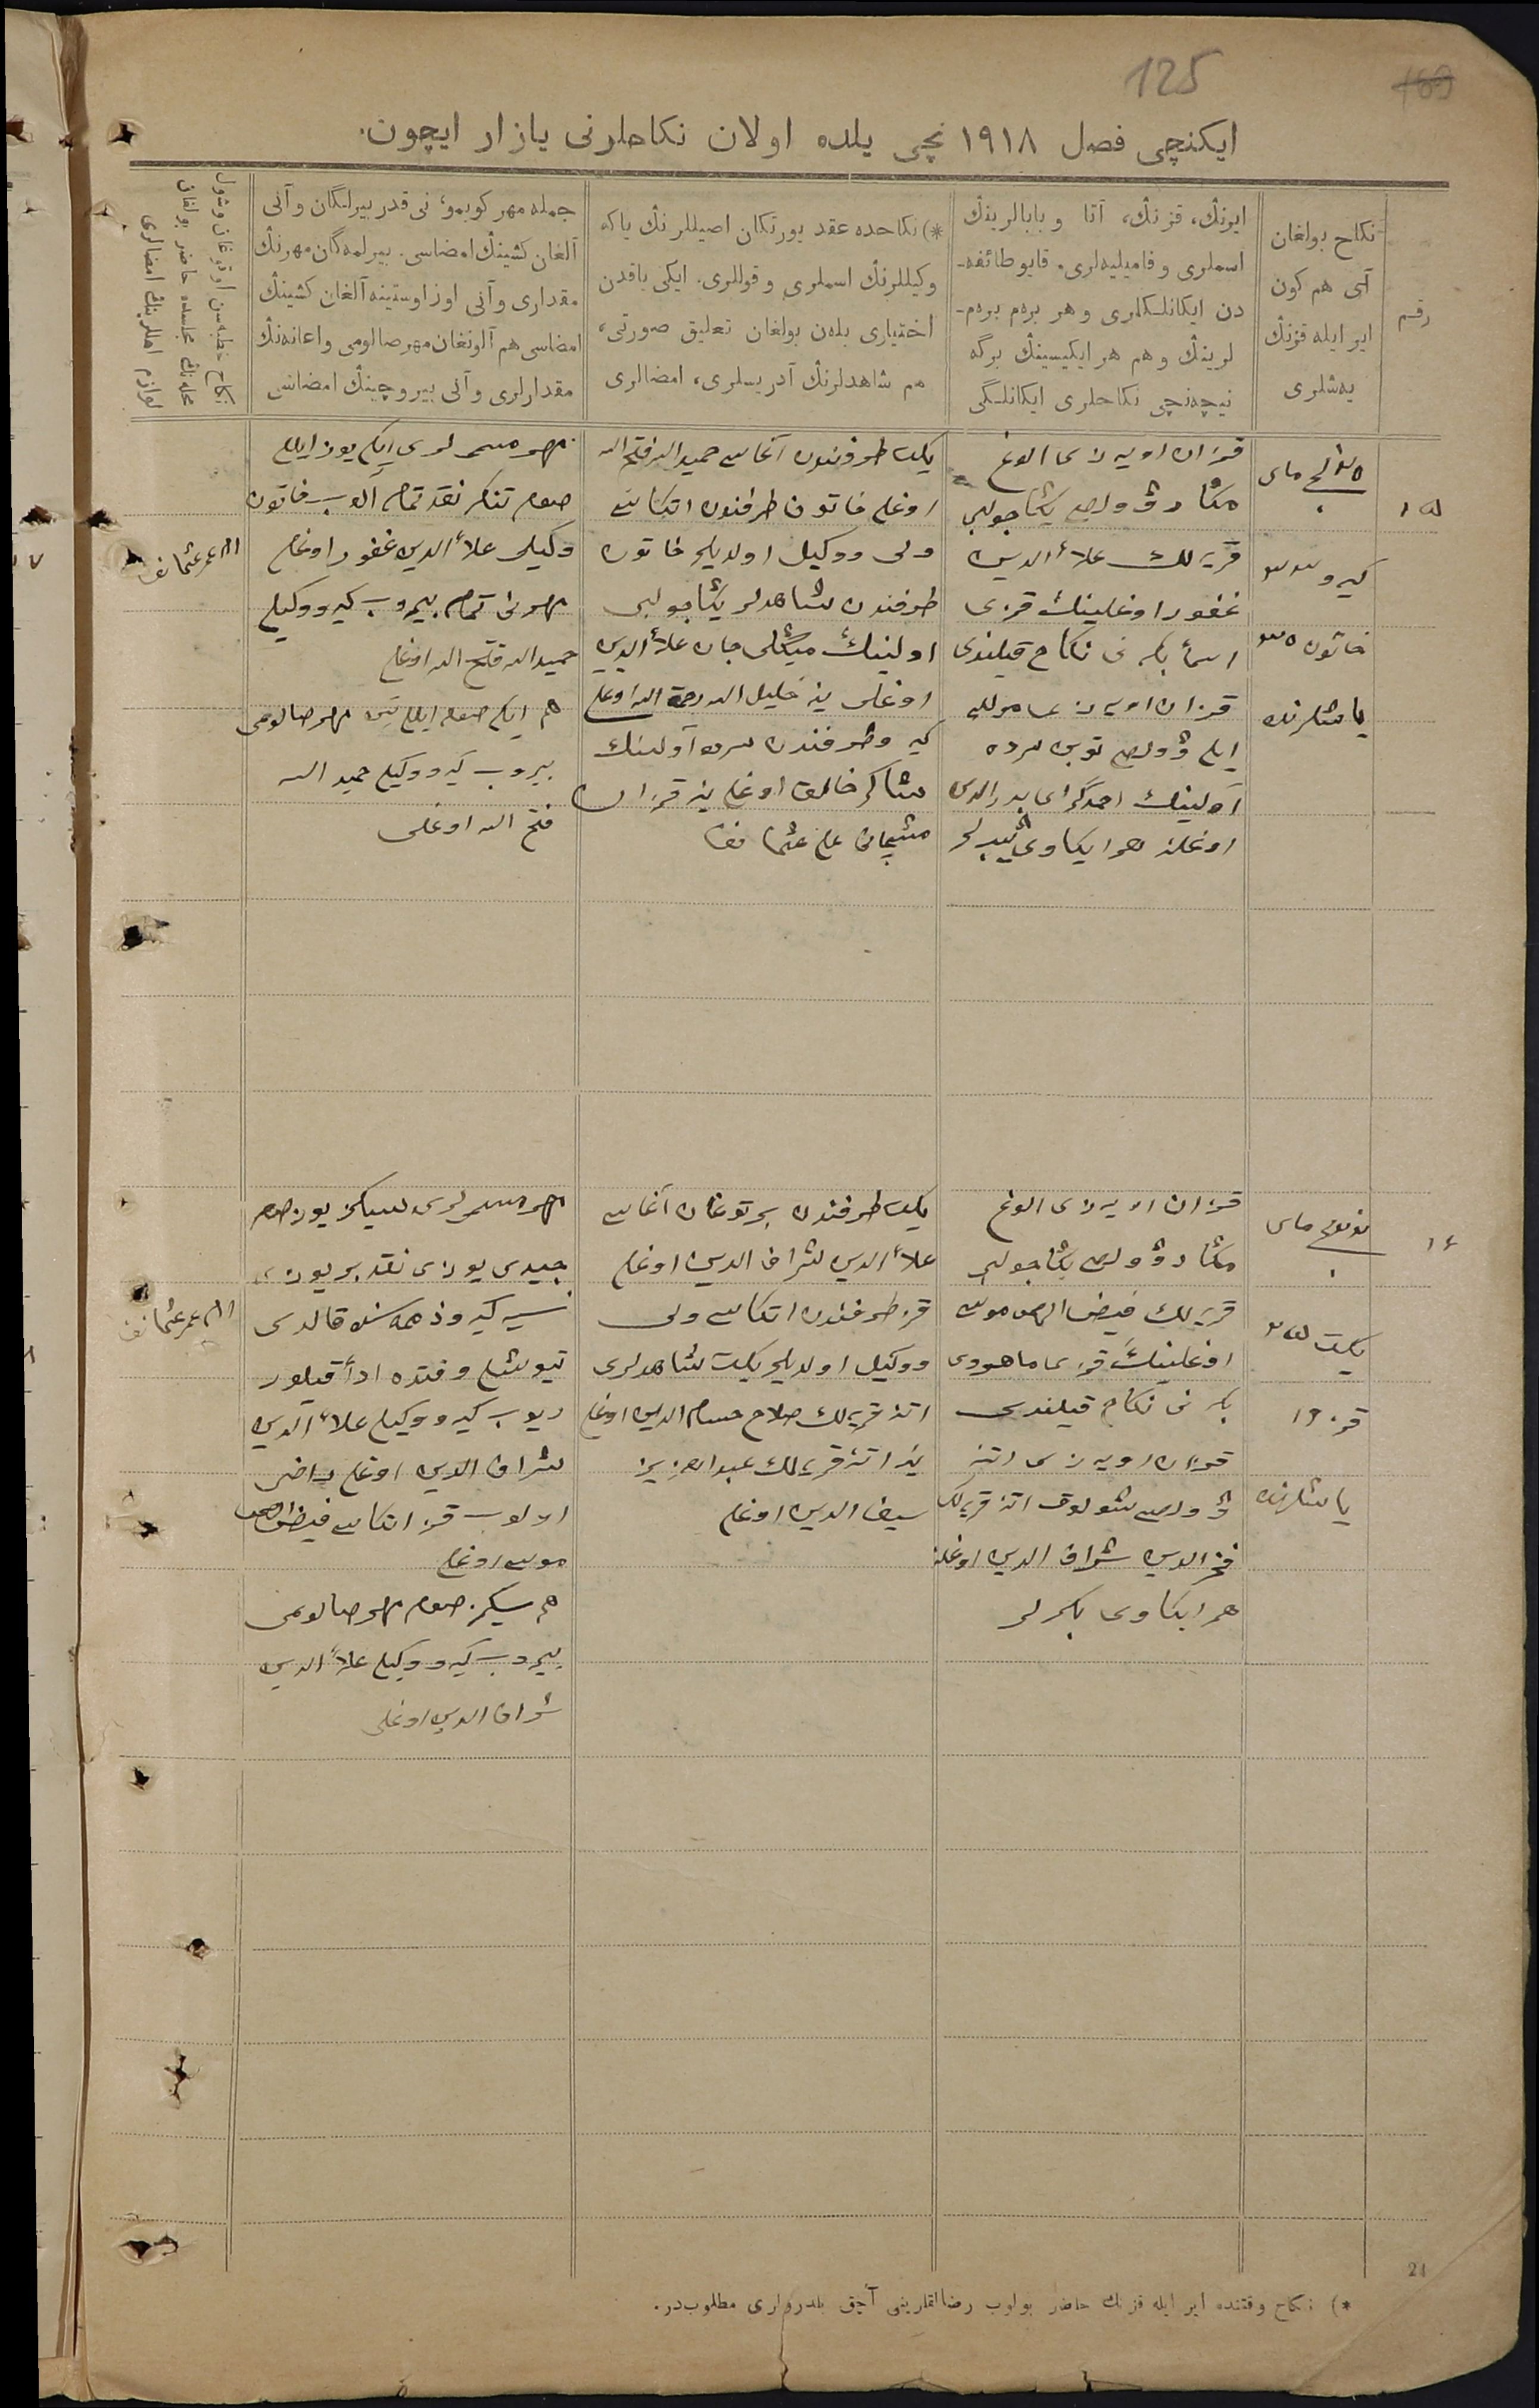 125
169
ایکنچی فصل ۱۹۱۸ نچی یلده اولان نکاحلرنی یازار ایچون.
رقم
نکاح بولغان
آی هم کون
ایر ایله قزنڭ
یه‌شلری
ایرنڭ، قزنڭ، آتا و بابالرینڭ
اسملری و فامیلیه‌لری. قایو طائفه‌-
دن ایکانلکلری و هر بره‌م بره‌م-
لرینڭ و هم هر ایکیسینڭ برگه
نیچه‌نچی نکاحلری ایکانلگی
*) نکاحده عقد یورتکان اصیللرنڭ یاکه
وکیللرنڭ اسملری و قوللری. ایکی یاقدن
اختیاری بله‌ن بولغان تعلیق صورتی،
هم شاهدلرنڭ آدریسلری، امضالری
جمله مهر کوبمو، نی قدر بیرلگان و آنی
آلغان کشینڭ امضاسی. بیرلمه‌گان مهرنڭ
مقداری و آنی اوز اوستینه آلغان کشینڭ
امضاسی هم آلونغان مهر صالومی و اعانه‌نڭ
مقدارلری و آنی بیروچینڭ امضاسی
نکاح خطبه‌سن اوقوغان و شول
محله‌نڭ مجلسده حاضر بولغان
لوازم اهللرینڭ امضالری
۱۵
مای
کیرو ۳۳
خاتون ۳۵
یاشلرنده
قزان اویه‌زی الوغ
قریه‌لك علاء الدین
غفور اوغلینڭ قزی
اسما بکه نی نکاح قیلندی
قزان اویه‌زی
آولینڭ احمدگرای بدرالدین
اوغلنه هر ایکاوی ثیبلر
یکت طرفندن آغاسی حمیدالله فتح الله
اوغلی خاتون طرفندن اتکاسی
ولی و وکیل اولدیلر خاتون
طرفندن شاهدلر
اولینڭ جان علاء الدین
اوغلی ینه خلیل الله رحمة الله اوغلی
کیرو طرفندن آولینڭ
شاکر اوغلی ینه قزان
مهر مسمی لری ایکی یوز ایللی
صوم نقد تمام آلوب خاتون
وکیلی علاء الدین غفور اوغلی
مهرنی تمام بیروب کیرو وکیلی
حمیدالله فتح الله اوغلی
هم ایکی صوم ایللی تین مهر صالومی
بیروب کیرو وکیلی حمید الله
فتح الله اوغلی
امام عمر عثمانف
۱۶
مای
یکت ۲۵
قز ۱۹
یاشلرنده
قزان اویه‌زی الوغ
قریه‌لك فیض الرحمن موسی
اوغلینڭ قزی ماهرودی
بکه نی نکاح قیلندی
قزان اویه‌زی اتنه
اتنه قریه‌لك
فخرالدین شراف الدین اوغلنه
هر ایکاوی بکرلر
یکت طرفندن بر توغان آغاسی
علاء الدین شراف الدین اوغلی
قز طرفندن اتکاسی ولی
و وکیل اولدیلر یکت شاهدلری
اتنه قریه‌لك صلاح حسام الدین اوغلی
ینه اتنه قریه‌لك عبدالعزیز
سیف الدین اوغلی
مهر مسمی لری سیکز یوز صوم
جیدی یوزی نقد بر یوزی
نسیه کیرو ذمه‌سنده قالدی
تیوشلی وقتده ادأ قیلور
دیوب کیرو وکیلی علاء الدین
شراف الدین اوغلی راضی
اولوب قز اتکاسی فیض الرحمن
موسی اوغلی
هم سیکز صوم مهر صالومی
بیروب کیرو وکیلی علاء الدین
شراف الدین اوغلی
امام عمر عثمانف
21
*) نکاح وقتنده ایر ایله قزنڭ حاضر بولوب رضالقلرینی آچق بلدرولری مطلوبدر.